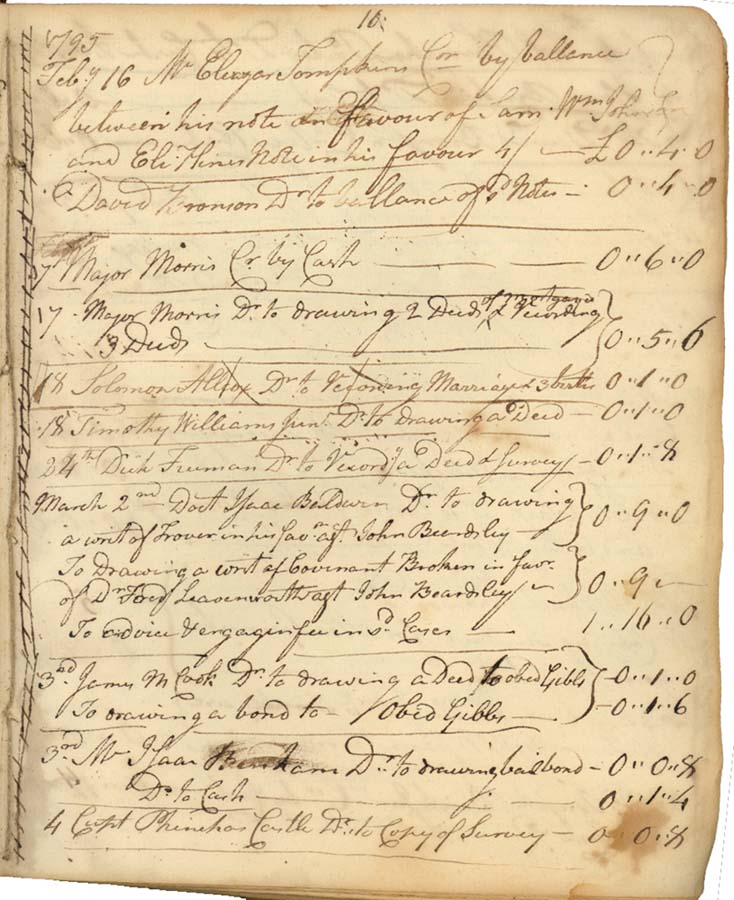 10:
1795
Feby 16 Mr Eleazar Tompkins Cr by ballance
between his note in favour of Sam. Wm Johnson
and Eli Hines Note in his favour 4/ — £0 " 4 " 0
David Bronson Dr to ballance of sd Notes — 0 " 4 " 0
Major Morris Cr by Cash — 0 " 6 " 0
17 Major Morris Dr to drawing 2 Deeds of Mortgage & Recording
3 Deeds — 0 " 5 " 6
18 Solomon Allcox Dr to Recording Marriage & 3 births 0 " 1 " 0
18 Timothy Williams Junr Dr to drawing a Deed — 0 " 1 " 0
24th Dick Freeman Dr to Recordg a Deed & Survey — 0 " 1 " 8
March 2nd — Doct Isaac Baldwin Dr to drawing
a writ of Trover in his favr agt John Beardsley — 0 " 9 " 0
To Drawing a writ of Covenant Broken in favr
of Dr Fredk Leavenworth agt John Beardsley — 0 " 9 —
To advice & engagin fee in sd Cases — 1 " 16 " 0
3rd James M Cook Dr to drawing a Deed to Obed Gibbs — 0 " 1 " 0
To drawing a bond to — Obed Gibbs — 0 " 1 " 6
3rd Mr Isaac Benham Dr to drawing bail bond — 0 " 0 " 8
Dr to Cash — 0 " 1 " 4
4 Capt Phinehas Castle Dr to Copy of Survey — 0 " 0 " 8